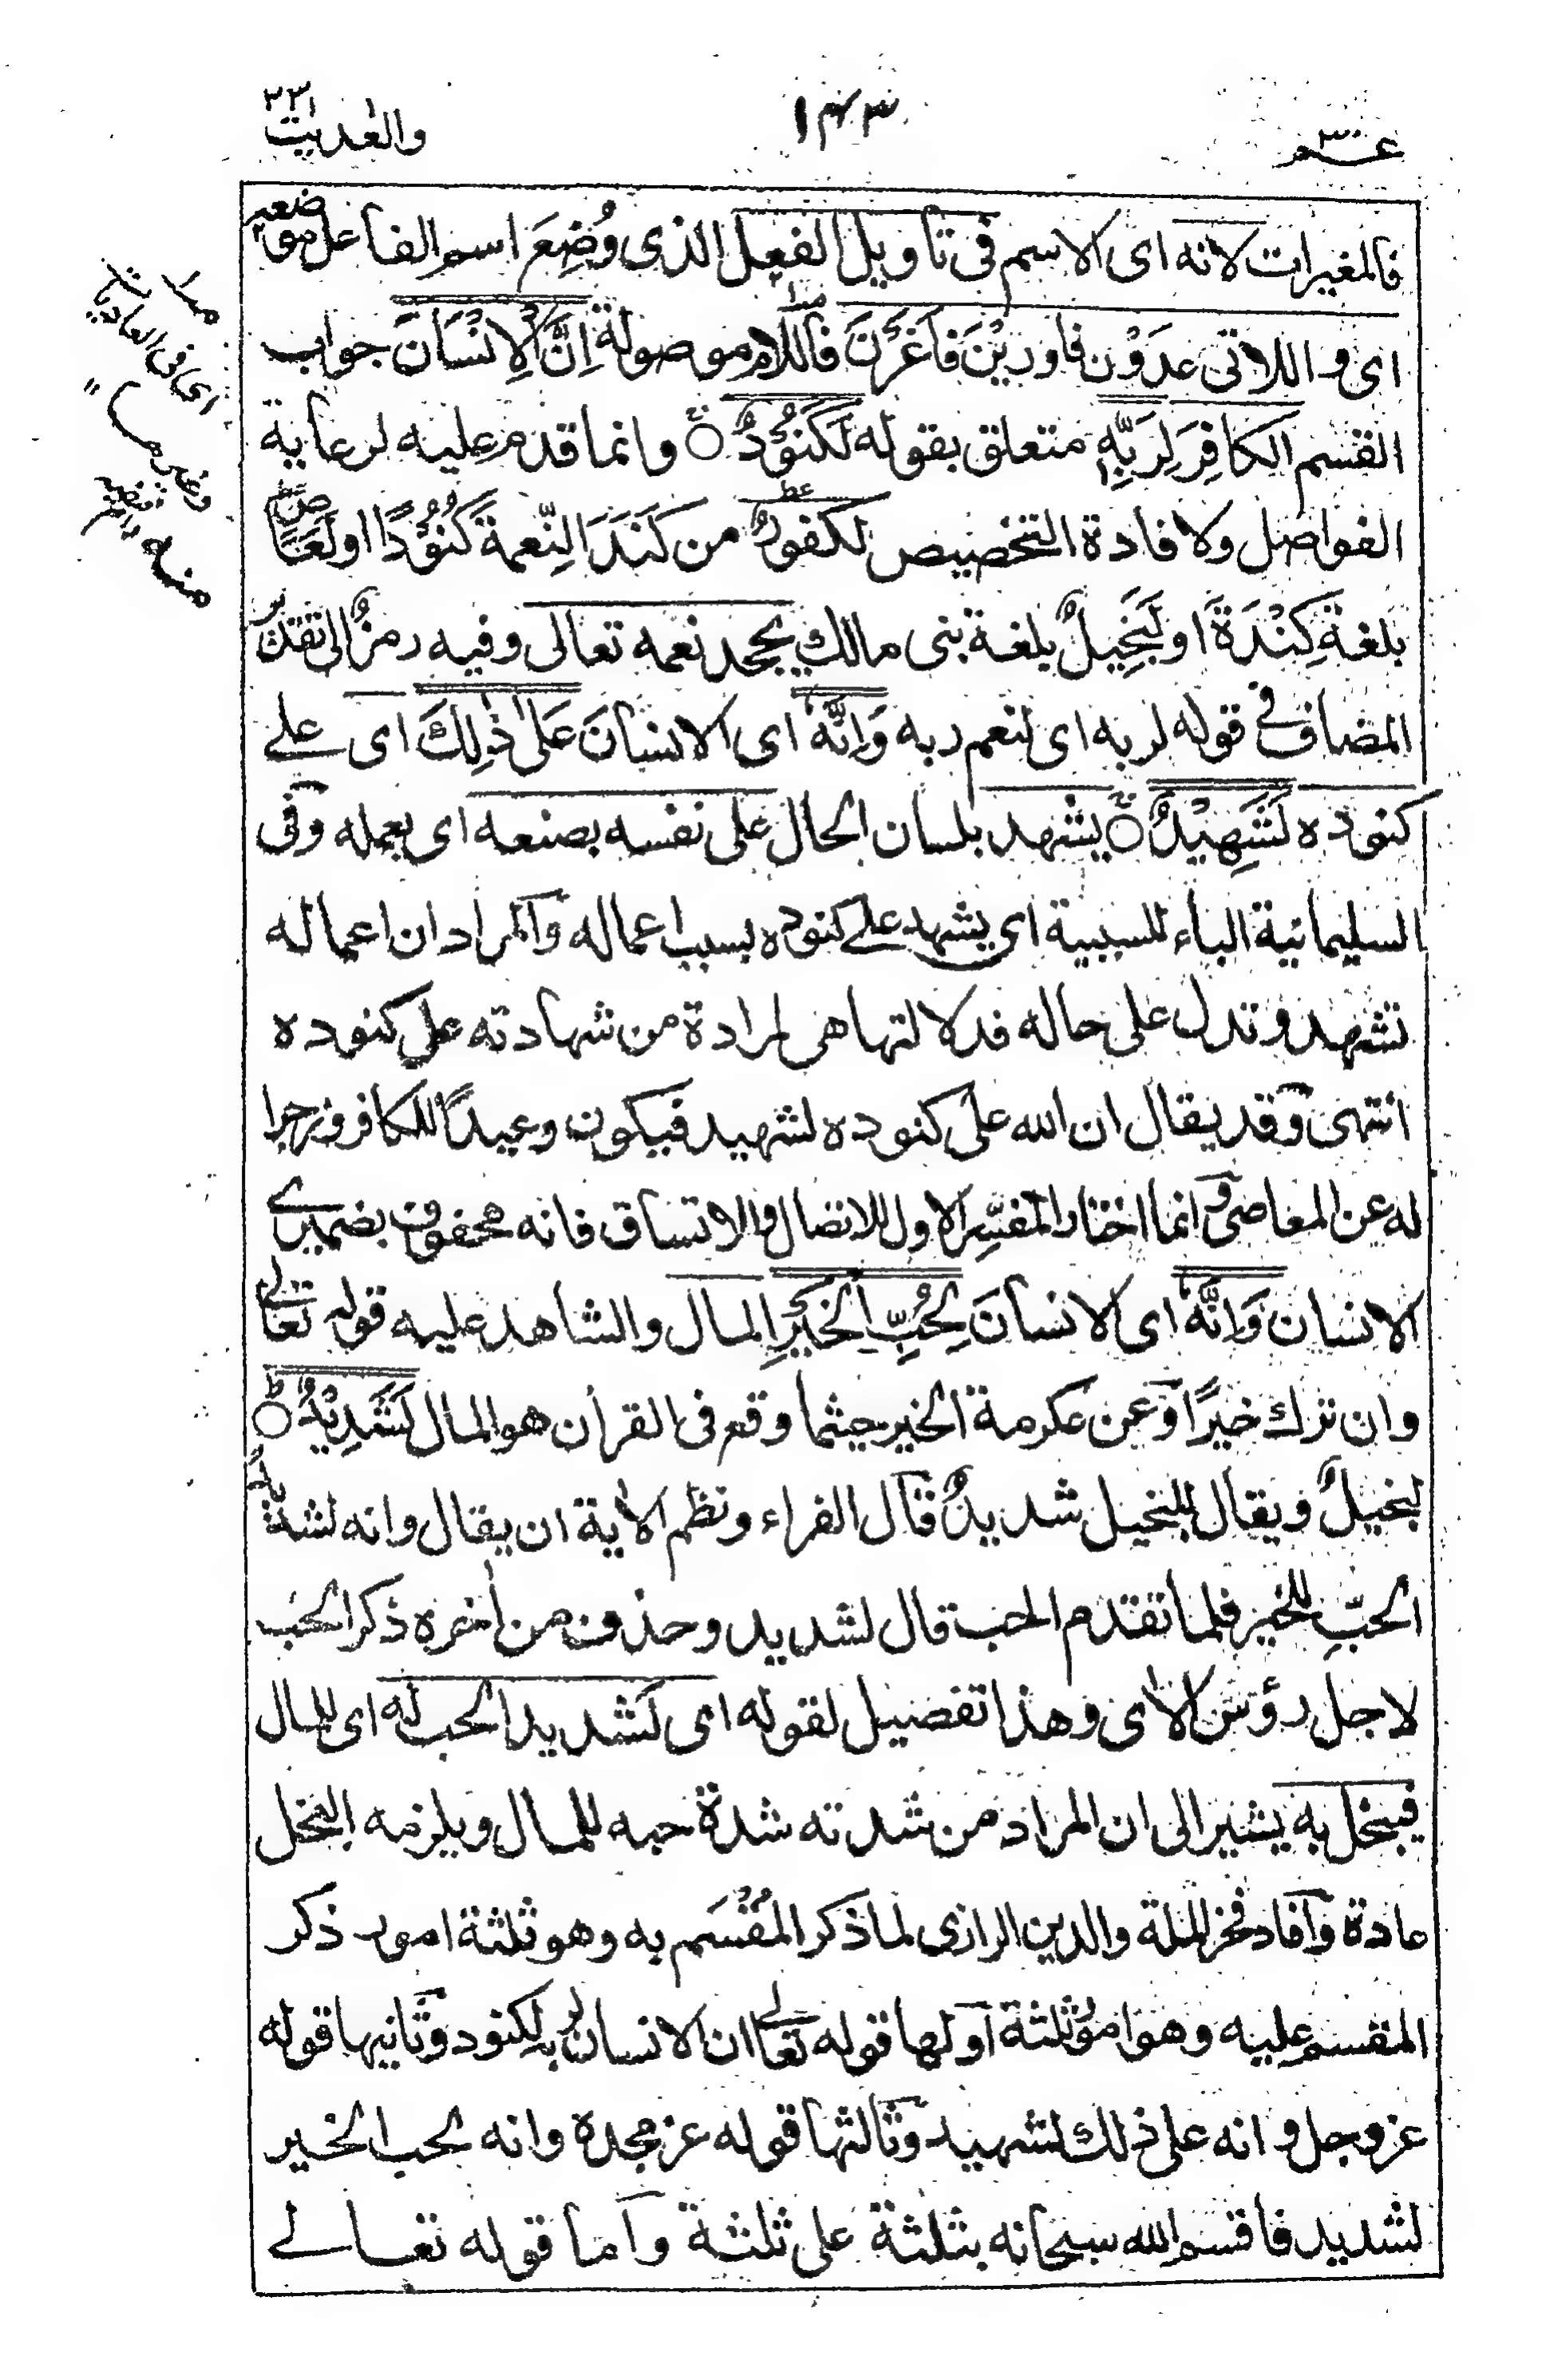 عـم ٣٠
١٤٣
والعٰديٰت
فالمغيرات لانه اى الاسم فى تأويل الفعل الذى وُضِعَ اسم الفاعل موضعه
اى و اللاتى عَدَوْن فاورَيْنَ فاَغَرْنَ فاللام موصولة اِنَّ الْاِنْسَانَ جواب
القسم الكافِرَ لِرَبِّهٖ متعلق بقوله لَكَنُوْدٌ ○ وانما قدم عليه لرعاية
الفواصل ولافادة التخصيص لكفورٌ من كَنَدَ النِّعمةَ كُنُوْدًا او لَعَاصٍ
بلغة كِنْدَةَ او لَبَخِيلٌ بلغة بنى مالك يجحد نعمه تعالى وفيه رمزٌ الى تقدير
المضاف فى قوله لربه اى لنعم ربه وَاِنَّهٗ اى الانسانَ عَلٰى ذٰلِكَ اى على
كنوده لَشَهِيْدٌ ○ يشهد بلسان الحال على نفسه بصنعه اى بعمله وفى
السليمانية الباء للسببية اى يشهد على كنوده بسبب اعماله والمراد ان اعماله
تشهد وتدل على حاله فدلالتها هى لمرادة من شهادته على كنوده
انتهى وقد يقال ان الله على كنوده لشهيد فيكون وعيدًا للكافر وزجرا
له عن المعاصى وانما اختار المفسِّر الاول للاتصال والاتساق فانه محفوف بضميرى
الانسان وَاِنَّهٗ اى الانسانَ لِحُبِّ الْخَيْرِ المال والشاهد عليه قوله تعالى
وان ترك خيرًا وعن عكرمة الخير حيثما وقع فى القرأن هو المال لَشَدِيْدٌ ○
لبخيلٌ ويقال للبخيل شديدٌ قال الفراء ونظم الاٰية ان يقال وانه لشديد
الحبِّ للخير فلما تقدم الحب قال لشديد وحذف من أخره ذكر الحب
لاجل رؤس الاٰى وهذا تفصيل لقوله اى لَشديد الحب له اى للمال
فيبخل به يشير الى ان المراد من شدته شدة حبه للمال ويلزمه البخل
عادة وأفاد فخر الملة والدين الرازى لما ذكر المُقْسَم به وهو ثلثة امور ذكر
المقسم عليه وهو امورٌ ثلثة اولها قوله تعالى ان الانسان لربه لكنود وثانيها قوله
عز وجل و انه على ذلك لشهيد وثالثها قوله عز مجده وانه لحب الخير
لشديد فاقسم الله سبحانه بثلثة على ثلثة واما قوله تعـــالى
اى فى العاديات
منه